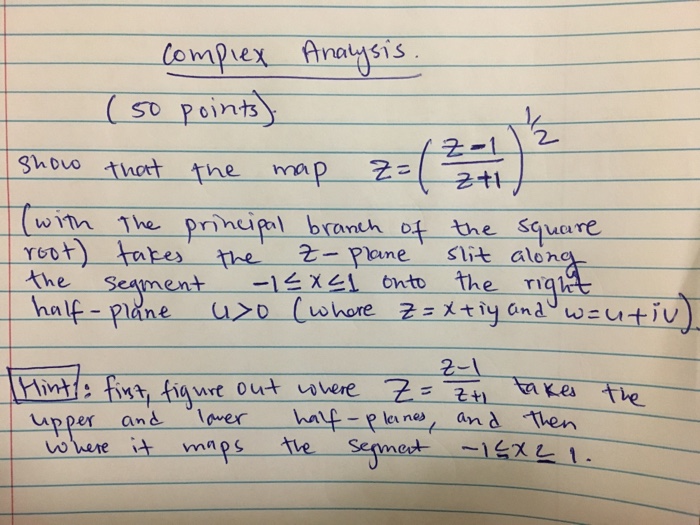 Complex Analysis.
(50 points).
Show that the map z = ( (z-1)/(z+1) )^1/2
(with The principal branch of the square
root) takes the z-plane slit along
the segment -1≤x≤1 onto the right
half-plane u>0 (whore z=x+iy and w=u+iv).
Hint: first, figure out where Z = (z-1)/(z+1) takes the
upper and lower half-planes, and then
where it maps the segment -1≤x≤1.